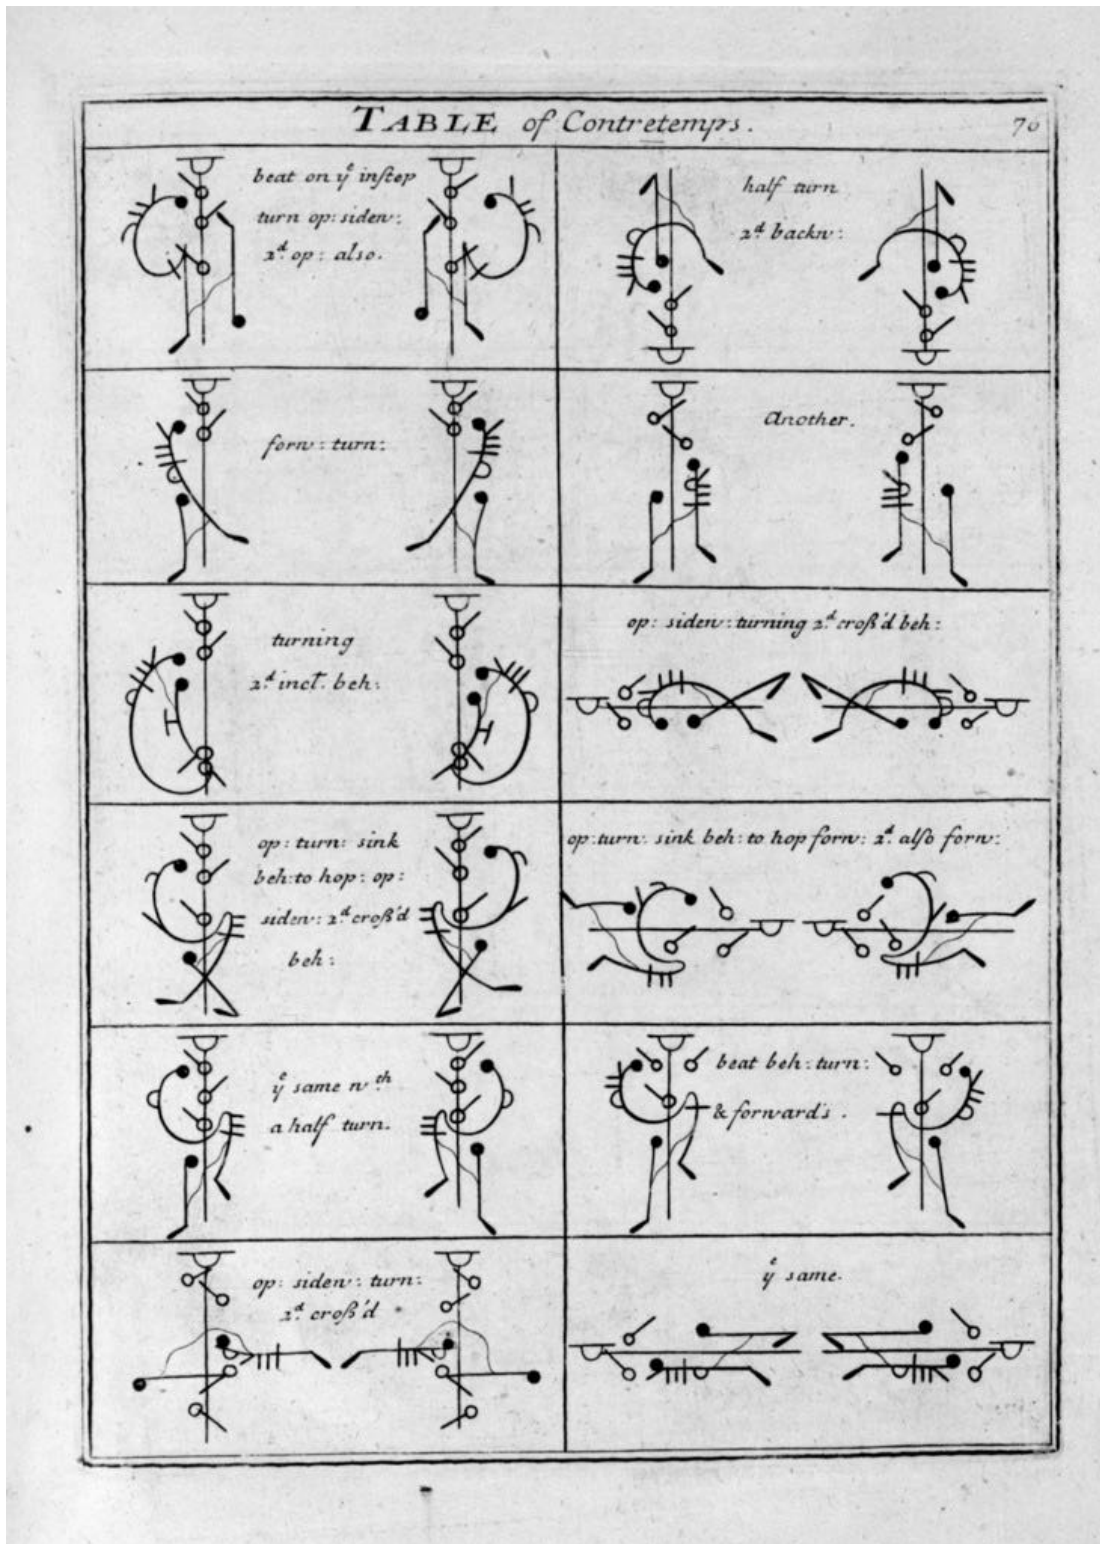 TABLE of Contretemps.
70
beat on yͤ inſtep
turn op: siden:
2.ᵈ op: also.
half turn
2.ᵈ backw:
forw: turn:
Another.
turning
2.ᵈ incl. beh:
op: siden: turning 2.ᵈ croſs'd beh:
op: turn: sink
beh: to hop: op:
siden: 2.ᵈ croſs'd
beh:
op: turn: sink beh: to hop forw: 2.ᵈ alſo forw:
yͤ same wᵗʰ
a half turn.
beat beh: turn:
& forwards.
op: siden: turn:
2.ᵈ croſs'd
yͤ same.